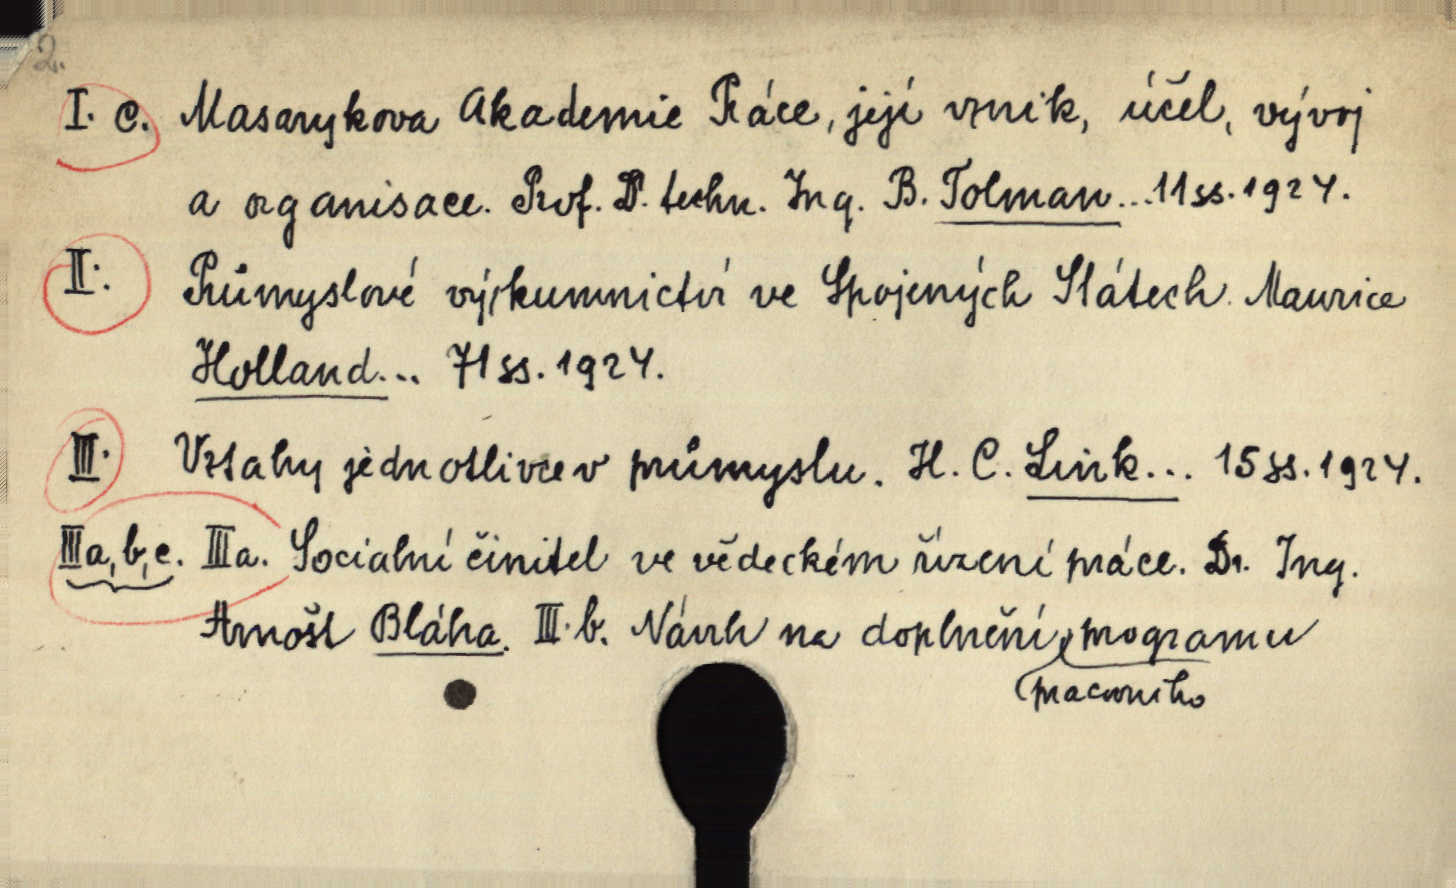 2.
I. c. Masarykova Akademie Práce, její vznik, účel, vývoj
a organisace. Prof. Dr. techn. Ing. B. Tolman...11ss.1924.
II. Průmyslové výzkumnictví ve Spojených Státech. Maurice
Holland... 71ss.1924.
III. Vztahy jednotlivce v průmyslu. H. C. Link... 15ss.1924.
III a, b, c. III a. Socialní činitel ve vědeckém řízení práce. Dr. Ing.
Arnošt Bláha. III. b. Návrh na doplnění programu
pracovního